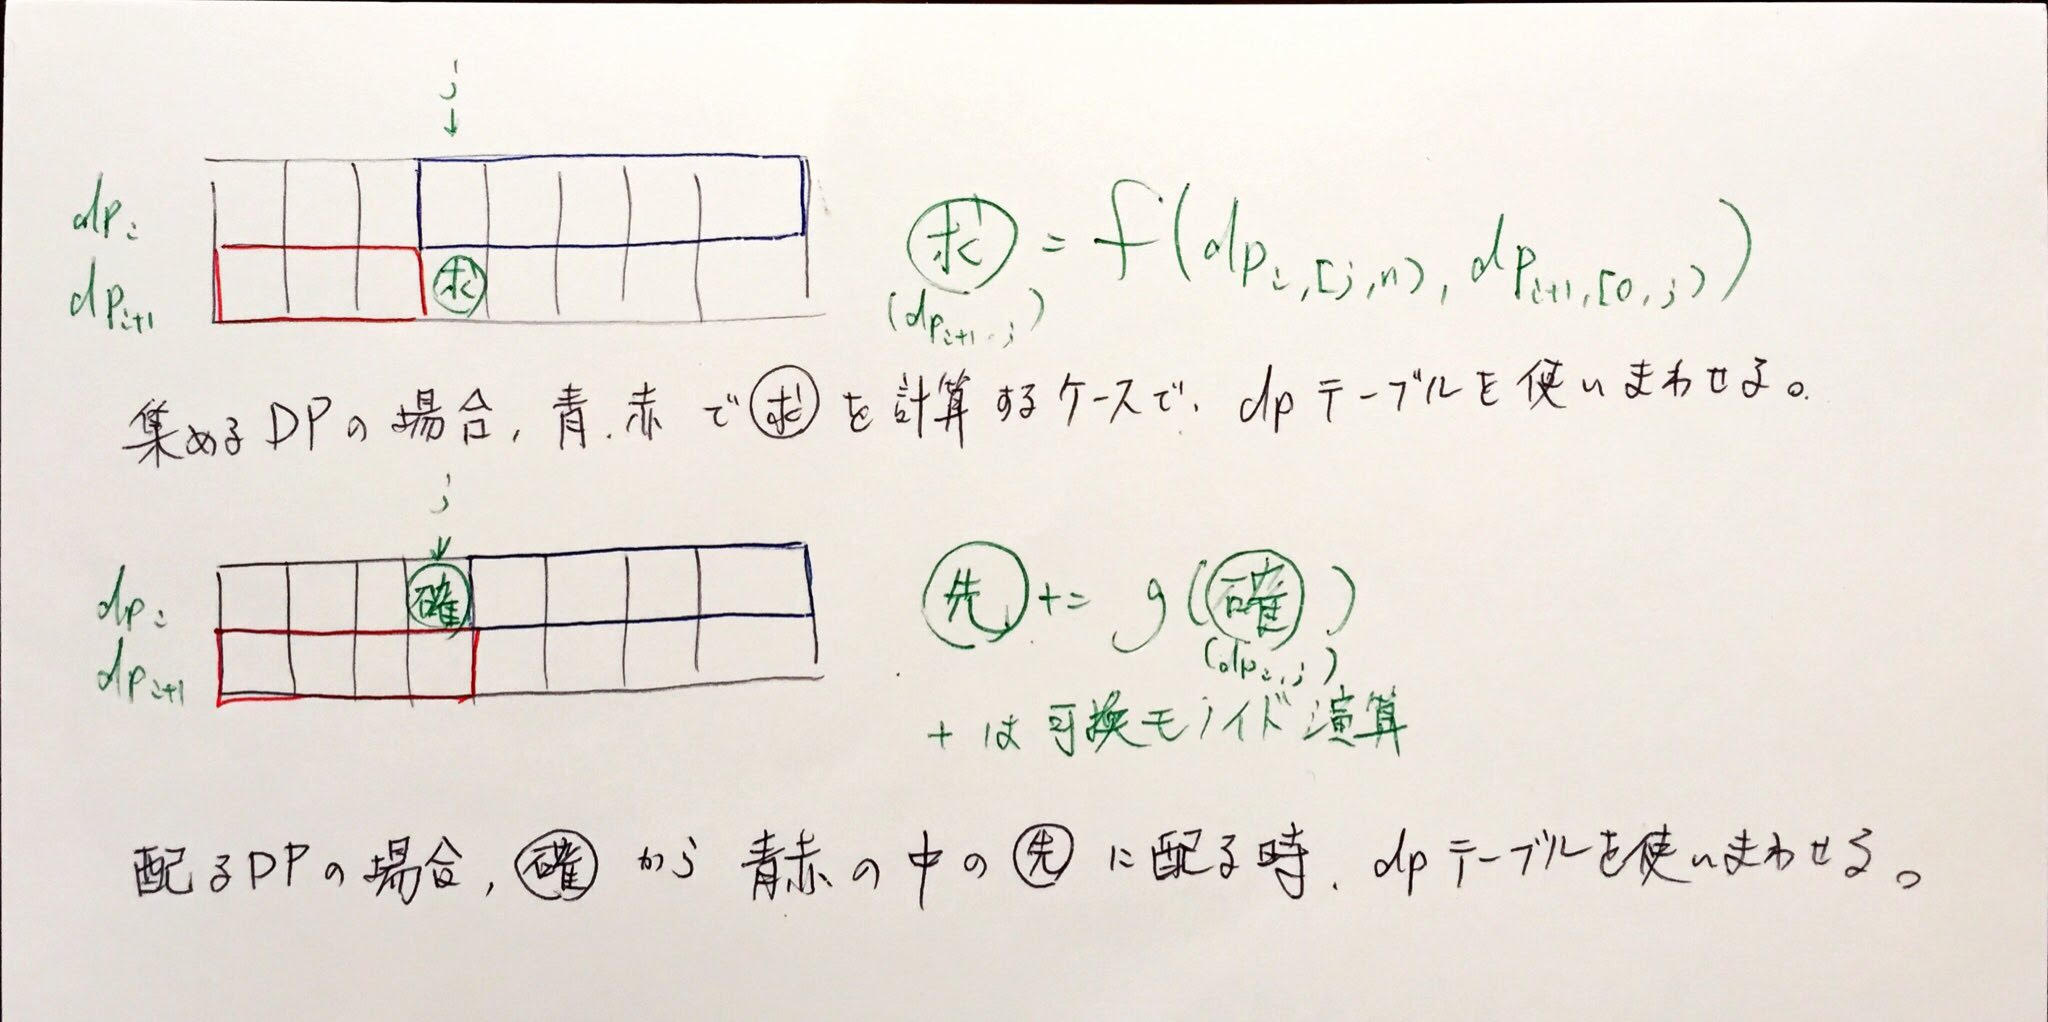 j
↓
dp i
dp i+1 求
求 = f(dp i,[j,n), dp i+1,[0,j))
(dp i+1,j)
集めるDPの場合,青,赤で求を計算するケースで、dpテーブルを使いまわせる。
j
↓
dp i 確
dp i+1
先 += g(確)
(dp i,j)
+は可換モノイド演算
配るDPの場合,確から青赤の中の先に配る時、dpテーブルを使いまわせる。